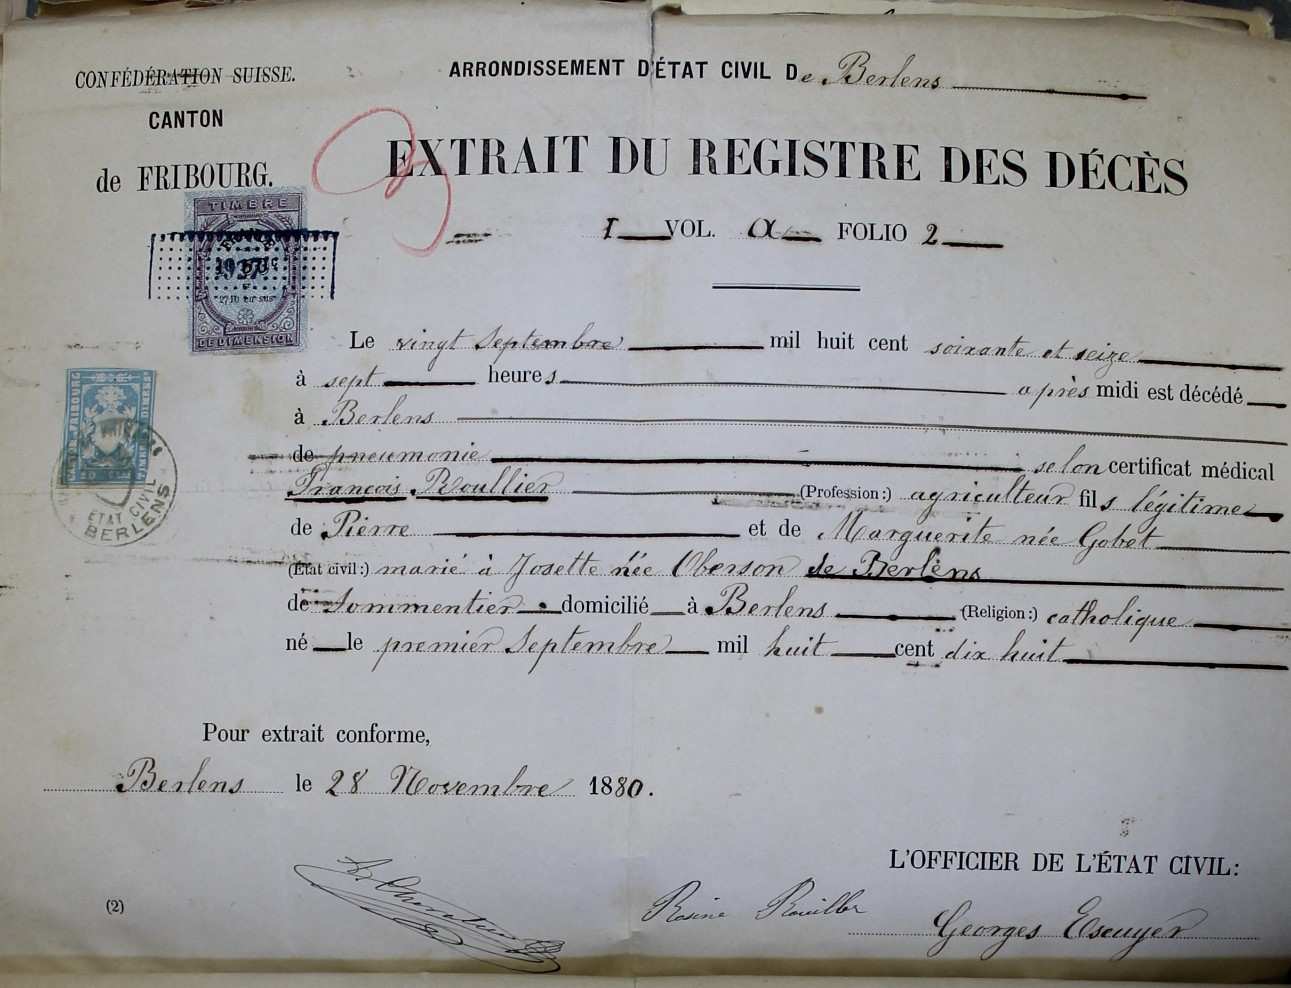 CONFÉDÉRATION SUISSE.
CANTON
de FRIBOURG.
ARRONDISSEMENT D'ÉTAT CIVIL De Berlens
EXTRAIT DU REGISTRE DES DÉCÈS
I VOL. a FOLIO 2
TIMBRE
DE DIMENSION
Le vingt Septembre mil huit cent soixante et seize
à sept heures après midi est décédé
à Berlens
de pneumonie selon certificat médical
François Roullier (Profession:) agriculteur fils légitime
de Pierre et de Marguerite née Gobet
(Etat civil:) marié à Josette née Oberson de Berlens
de Sommentier domicilié à Berlens (Religion:) catholique
né le premier Septembre mil huit cent dix huit
ÉTAT CIVIL
BERLENS
Pour extrait conforme,
Berlens le 28 Novembre 1880.
L'OFFICIER DE L'ÉTAT CIVIL:
(2)
Rosine Rouiller
Georges Escuyer